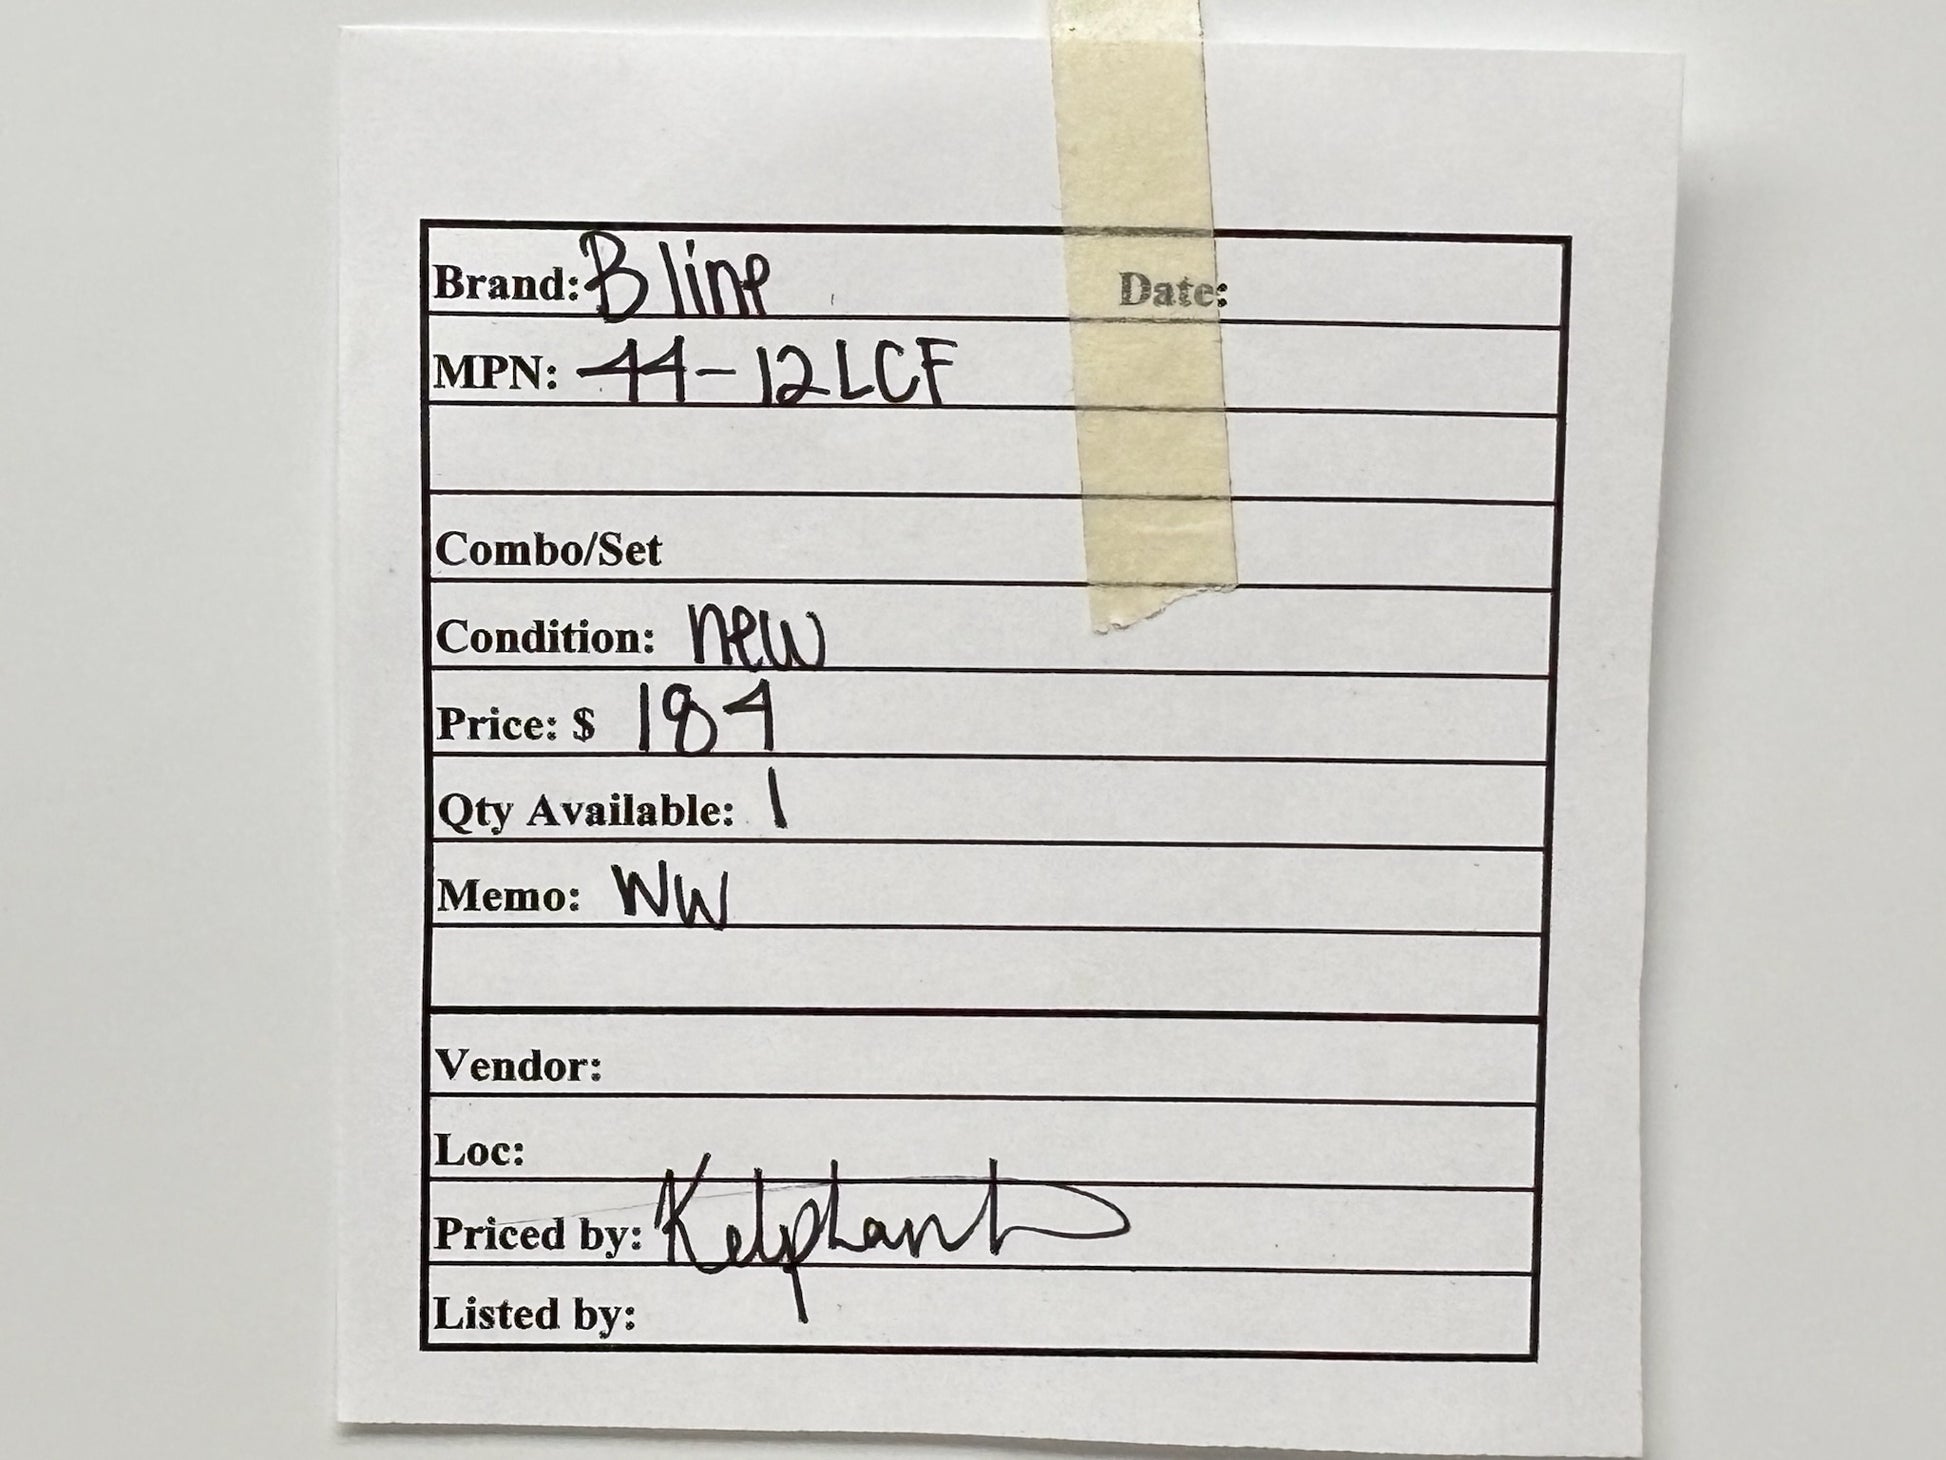 Brand: Bline Date:
MPN: 44-12LCF
Combo/Set
Condition: new
Price: $ 184
Qty Available: 1
Memo: WW
Vendor:
Loc:
Priced by:
Listed by: